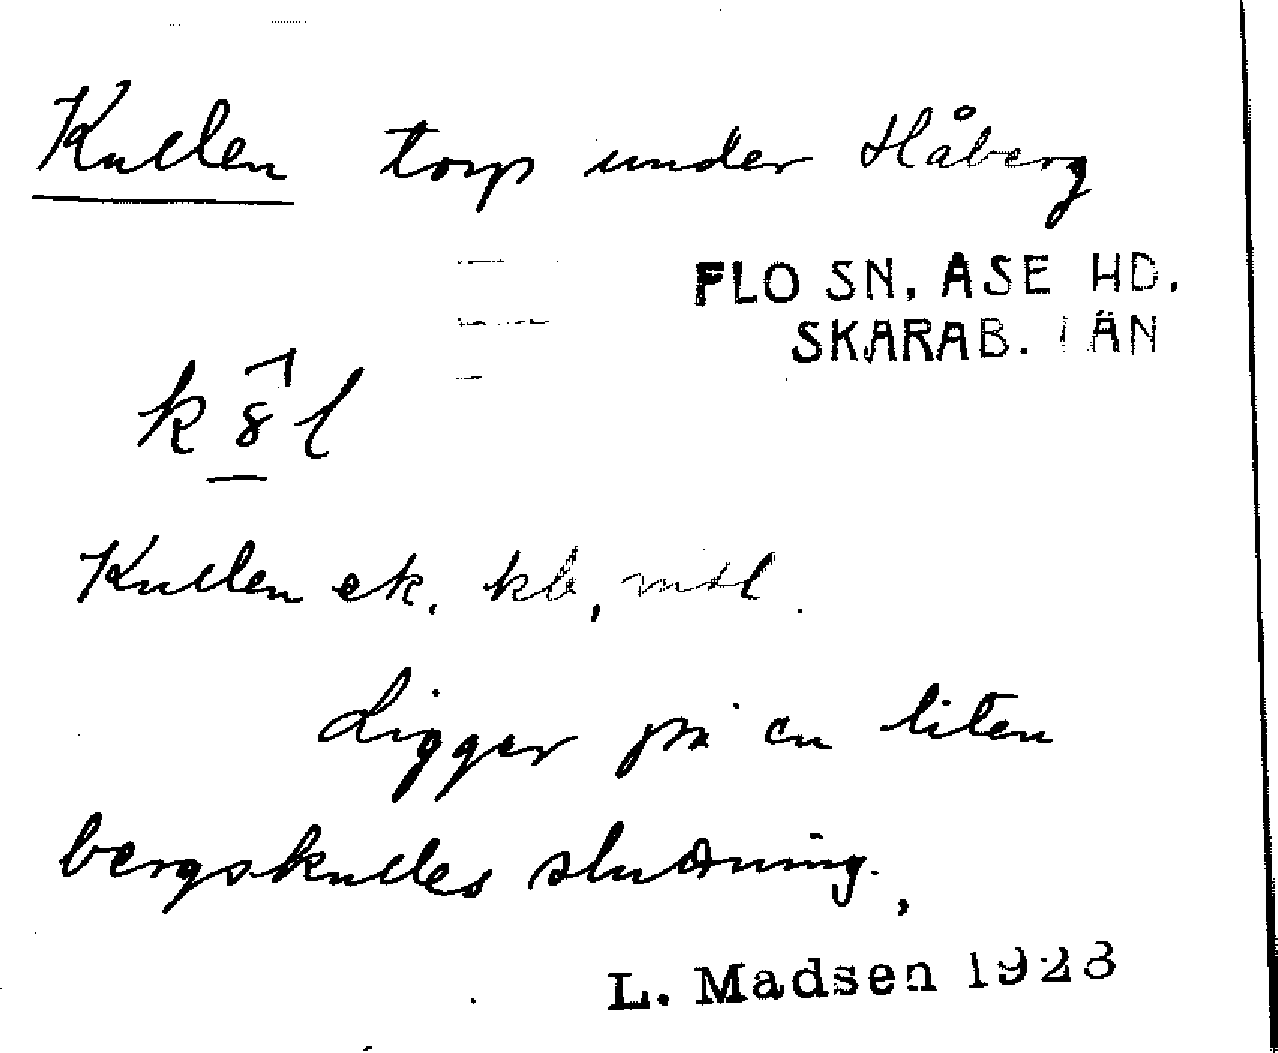 Kullen torp under Håberg
FLO SN. ASE HD.
SKARAB. LÄN
Kullen ek. kb, mtl.
Ligger på en liten
bergskulles sluttning.
L. Madsen 1928